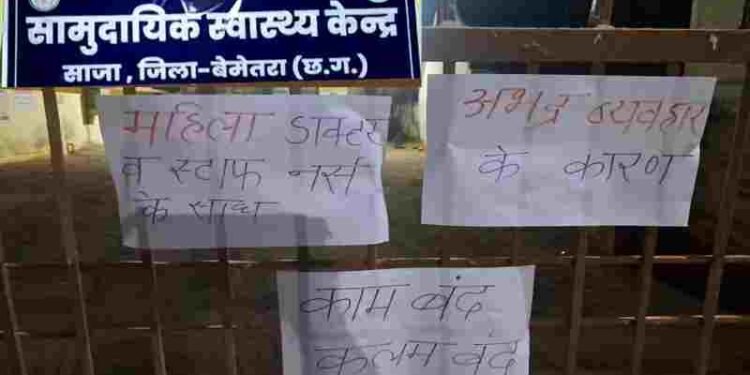 सामुदायिक स्वास्थ्य केन्द्र
साजा , जिला-बेमेतरा (छ.ग.)
महिला डाक्टर
व स्टाफ नर्स
के साथ
अभद्र व्यवहार
के कारण
काम बंद
कलम बंद